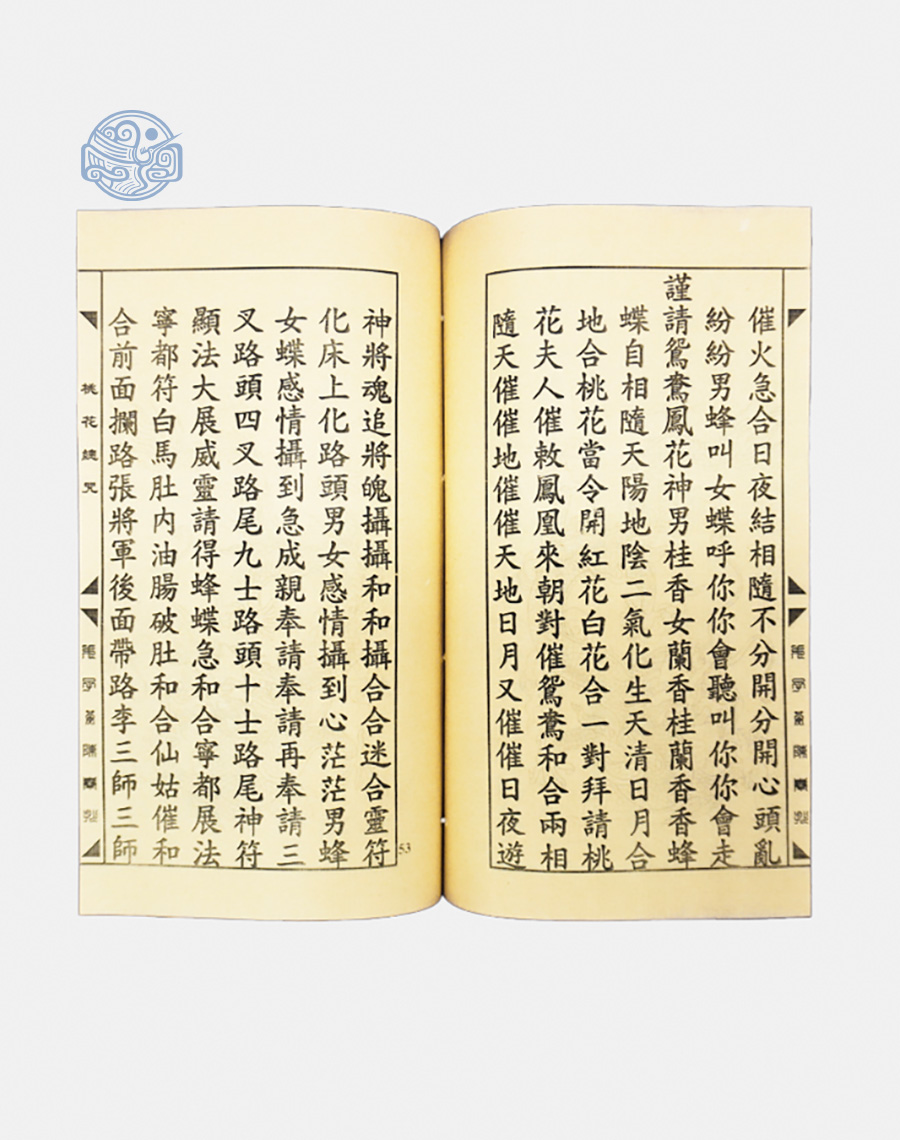 催火急合日夜結相隨不分開分開心頭亂
紛紛男蜂叫女蝶呼你你會聽叫你你會走
謹請鴛鴦鳳花神男桂香女蘭香桂蘭香香蜂
蝶自相隨天陽地陰二氣化生天清日月合
地合桃花當令開紅花白花合一對拜請桃
花夫人催敕鳳凰來朝對催鴛鴦和合兩相
隨天催催地催催天地日月又催催日夜遊
神將魂追將魄攝攝和和攝合合迷合靈符
化床上化路頭男女感情攝到心茫茫男蜂
女蝶感情攝到急成親奉請奉請再奉請三
叉路頭四叉路尾九士路頭十士路尾神符
顯法大展威靈請得蜂蝶急和合寧都展法
寧都符白馬肚内油腸破肚和合仙姑催和
合前面攔路張將軍後面帶路李三師三師
53
桃花
咒